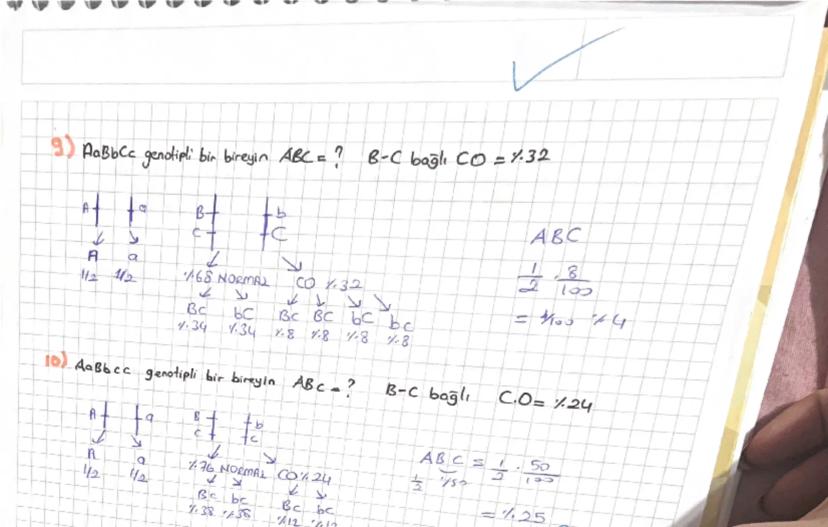 9) AaBbCc genotipli bir bireyin ABC = ? B-C bağlı CO = %32
A a B b
C C
A a %68 NORMAL CO %32
1/2 1/2 Bc bC Bc BC bC bc
%34 %34 %8 %8 %8 %8
ABC
1/2 . 8/100
= 4/100 %4
10) AaBbcc genotipli bir bireyin ABc = ? B-C bağlı C.O = %24
A a B b
c c
A a %76 NORMAL CO %24
1/2 1/2 Bc bc Bc bc
%38 %38 %12 %12
ABC = 1/2 . 50/100
1/2 %50
= %25